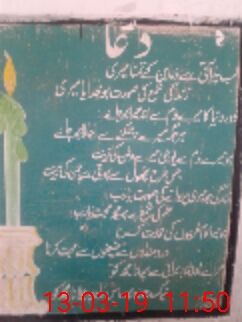 دعا
لب پہ آتی ہے دعا بن کے تمنا میری
زندگی شمع کی صورت ہو خدایا میری
دور دنیا کا میرے دم سے اندھیرا ہو جائے
ہر جگہ میرے چمکنے سے اجالا ہو جائے
ہو میرے دم سے یونہی میرے وطن کی زینت
جس طرح پھول سے ہوتی ہے چمن کی زینت
زندگی ہو میری پروانے کی صورت یا رب
علم کی شمع سے ہو مجھ کو محبت یا رب
ہو میرا کام غریبوں کی حمایت کرنا
دردمندوں سے ضعیفوں سے محبت کرنا
میرے اللہ برائی سے بچانا مجھ کو
13-03-19 11:50